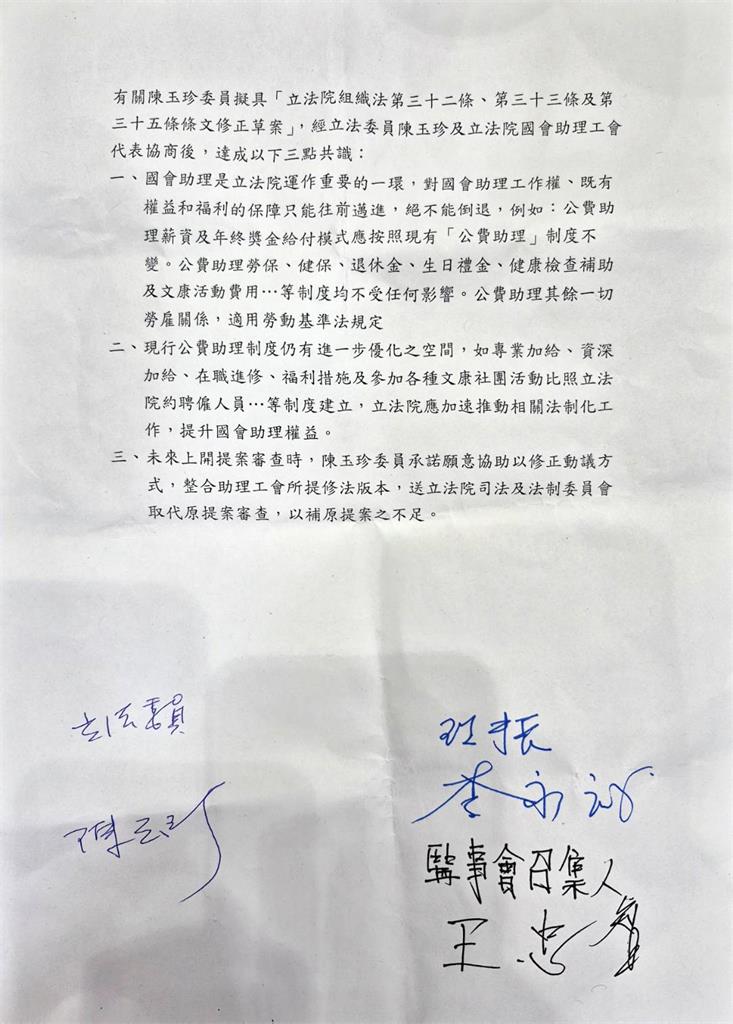 有關陳玉珍委員擬具「立法院組織法第三十二條、第三十三條及第
三十五條條文修正草案」，經立法委員陳玉珍及立法院國會助理工會
代表協商後，達成以下三點共識：
一、國會助理是立法院運作重要的一環，對國會助理工作權、既有
權益和福利的保障只能往前邁進，絕不能倒退，例如：公費助
理薪資及年終獎金給付模式應按照現有「公費助理」制度不
變。公費助理勞保、健保、退休金、生日禮金、健康檢查補助
及文康活動費用…等制度均不受任何影響。公費助理其餘一切
勞雇關係，適用勞動基準法規定
二、現行公費助理制度仍有進一步優化之空間，如專業加給、資深
加給、在職進修、福利措施及參加各種文康社團活動比照立法
院約聘僱人員…等制度建立，立法院應加速推動相關法制化工
作，提升國會助理權益。
三、未來上開提案審查時，陳玉珍委員承諾願意協助以修正動議方
式，整合助理工會所提修法版本，送立法院司法及法制委員會
取代原提案審查，以補原提案之不足。
陳玉珍
監事會召集人
王忠